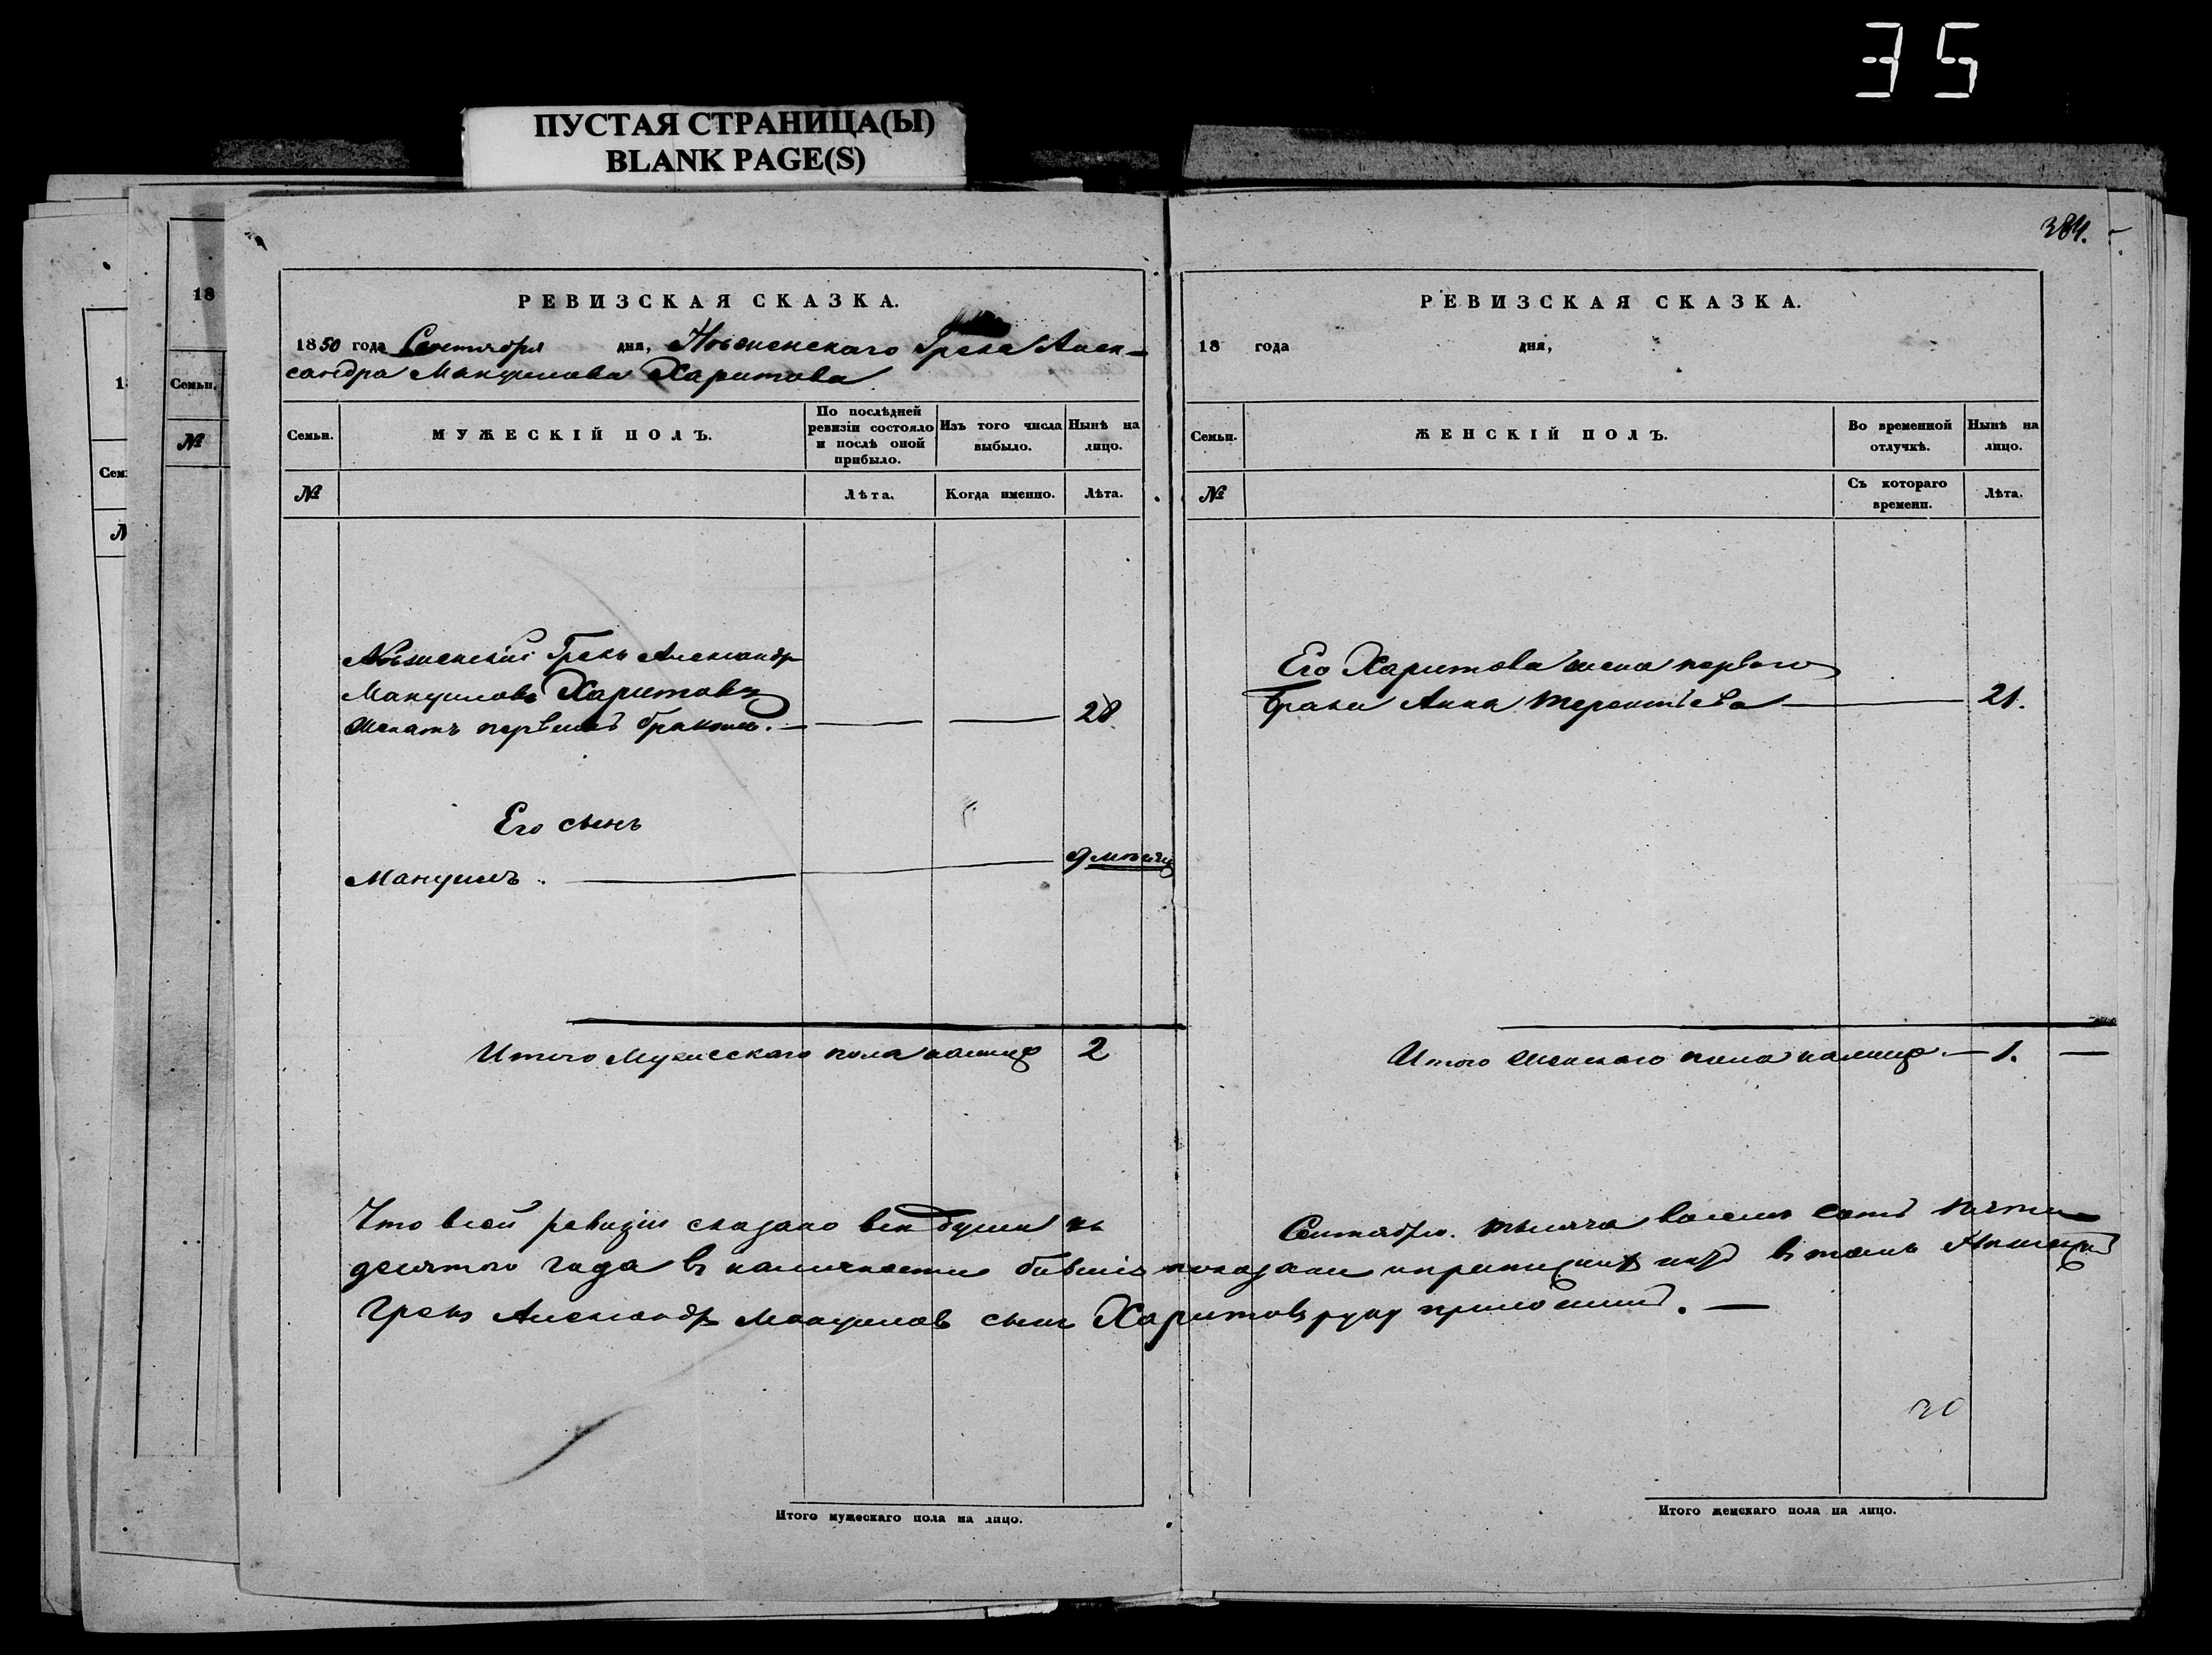 35
ПУСТАЯ СТРАНИЦА(Ы)
BLANK PAGE(S)
384.
18
Семьи.
№
РЕВИЗСКАЯ СКАЗКА.
1850 года Сентября дня, Нѣженскаго Грека Алек-
сандра Мануилова Харитова
Семьи.
МУЖЕСКІЙ ПОЛЪ.
По послѣдней
ревизіи состояло
и послѣ оной
прибыло.
Изъ того числа
выбыло.
Нынѣ на
лицо.
№
Лѣта.
Когда именно.
Лѣта.
Нѣженскій Грекъ Александръ
Мануиловъ Харитовъ
Женатъ первымъ бракомъ. 28
Его сынъ
Мануилъ. 9 мѣсяц
Итого Мужескаго пола налицо 2
РЕВИЗСКАЯ СКАЗКА.
18 года дня,
Семьи.
ЖЕНСКІЙ ПОЛЪ.
Во временной
отлучкѣ.
Нынѣ на
лицо.
№
Съ котораго
времени.
Лѣта.
Его Харитова жена перваго
брака Анна Терентьева 21.
Итого Женскаго пола налицо 1.
Что всей ревизіи сказано все души къ Сентябрю тысяча восемь сотъ пяти
десятого года в наличности бывшіе показаны в томъ Нѣженскій
Грекъ Александръ Мануиловъ сынъ Харитовъ руку приложилъ.
Итого мужескаго пола на лицо.
Итого женскаго пола на лицо.